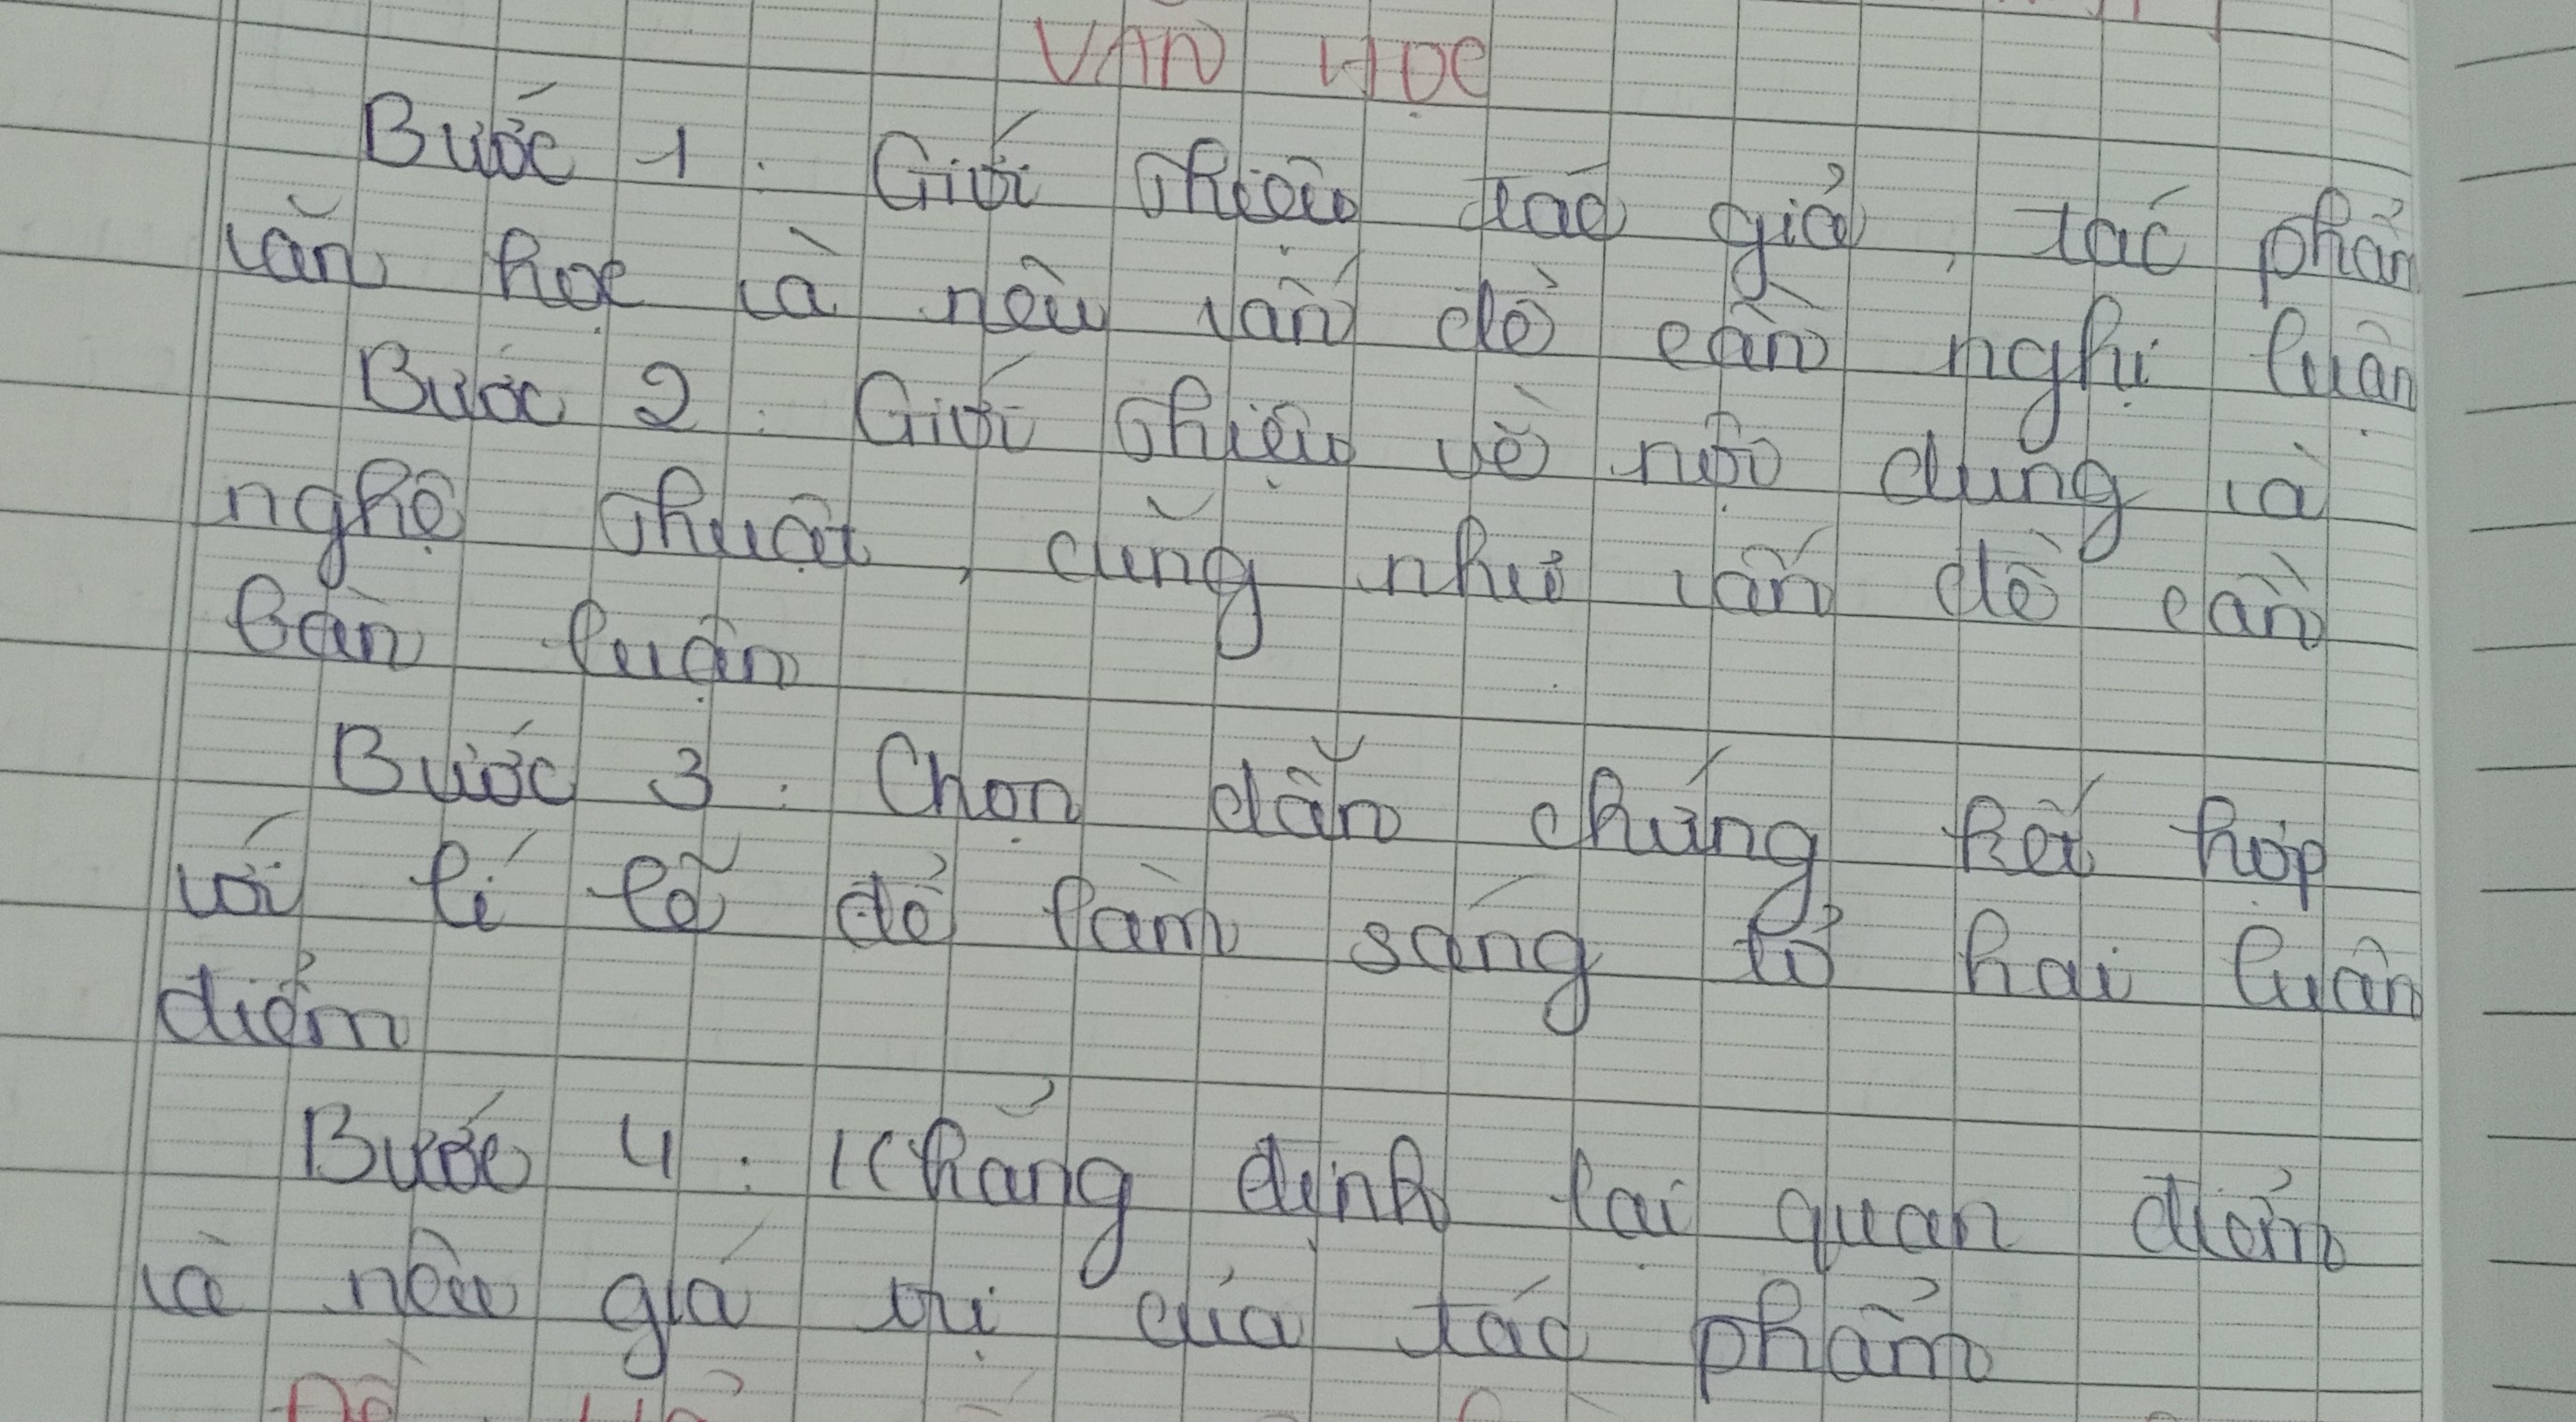 VĂN HỌC
Bước 1: Giới thiệu tác giả, tác phẩm
văn học và nêu vấn đề cần nghị luận
Bước 2: Giới thiệu về nội dung và
nghệ thuật, cũng như vấn đề cần
bàn luận
Bước 3: Chọn dẫn chứng kết hợp
với lí lẽ để làm sáng tỏ hai luận
điểm
Bước 4: Khẳng định lại quan điểm
và nêu giá trị của tác phẩm